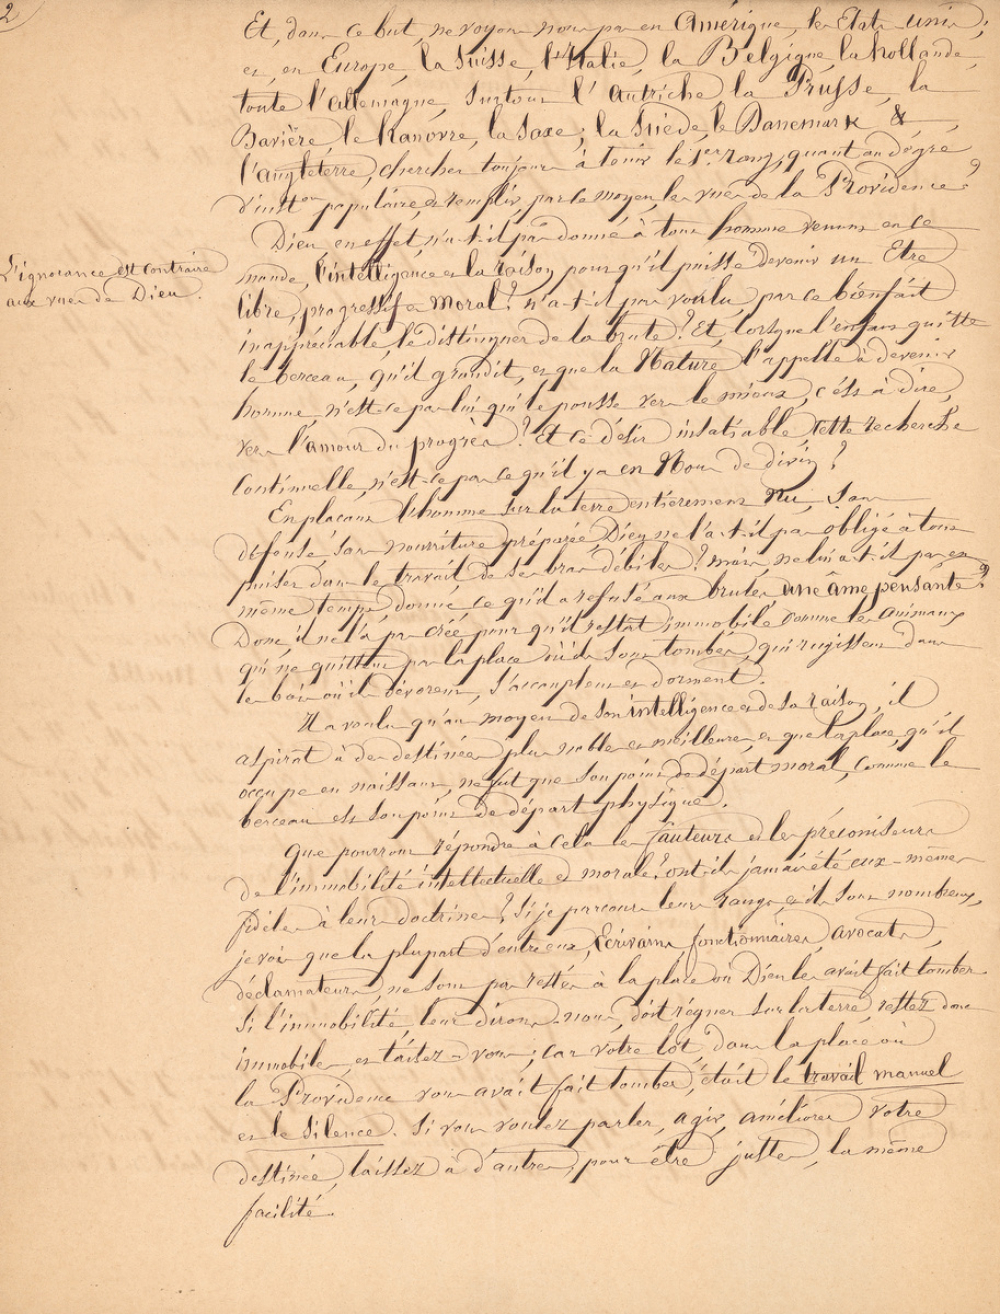 2
Et, dans ce but, ne voyons nous pas en Amérique, les Etats unis;
et, en Europe, la Suisse, l'Italie, la Belgique, la hollande,
toute l'allemagne, surtout l'autriche la Prusse, la
Bavière, le hanovre, la Saxe; la Suède, le Danemark &,
l'angleterre, chercher toujours à tenir le 1er. rang, quant au dégré
d'inston populaire, et remplir, par ce moyen, les vues de la Providence?
Dieu, en effet, n'a-t-il pas donné à tout homme venant en ce
L'ignorance est contraire
aux vues de Dieu.
monde, l'intelligence et la raison pour qu'il puisse devenir un Etre
libre, progressif et moral? n'a-t-il pas voulu, par ce bienfait
inappréciable, le distinguer de la brute? Et, lorsque l'enfant quitte
le berceau, qu'il grandit, et que la Nature l'appelle à devenir
homme, n'est-ce pas lui qui le pousse vers le mieux, c'est à dire,
vers l'amour du progrès? Et ce désir insatiable, cette recherche
continuelle, n'est-ce pas ce qu'il y a en Nous de divin?
En plaçant l'homme sur la terre entièrement Nu, sans
défense, sans nourriture préparée, Dieu ne l'a-t-il pas obligé à tout
puiser dans le travail de ses bras débiles? mais, ne lui a-t-il pas, en
même temps, donné ce qu'il a refusé aux brutes une âme pensante?
Donc, il ne l'a pas créé pour qu'il restât immobile comme les animaux
qui ne quittent pas la place où ils sont tombés, qui rugissent dans
les bois où ils dévorent, s'accouplent et dorment.
Il a voulu qu'au moyen de son intelligence et de sa raison, il
aspirât à des destinées plus nobles et meilleures, et que la place, qu'il
occupe en naissant, ne fut que son point de départ moral, comme le
berceau est son point de départ physique.
Que pourront répondre à cela les fauteurs et les préconiseurs
de l'immobilité intellectuelle et morale? ont-ils jamais été eux-mêmes
fidèles à leur doctrine? Si je parcours leurs rangs, et ils sont nombreux,
je vois que la plupart d'entre eux, Ecrivains, fonctionnaires, avocats,
déclamateurs, ne sont pas restés à la place où Dieu les avait fait tomber
Si l'immobilité, leur dirons-nous, doit régner sur la terre, restez donc
immobiles, et taisez-vous; car votre lot, dans la place où
la Providence vous avait fait tomber, était le travail manuel
et le silence. Si vous voulez parler, agir, améliorer votre
destinée, laissez à d'autres, pour être justes, la même
facilité.